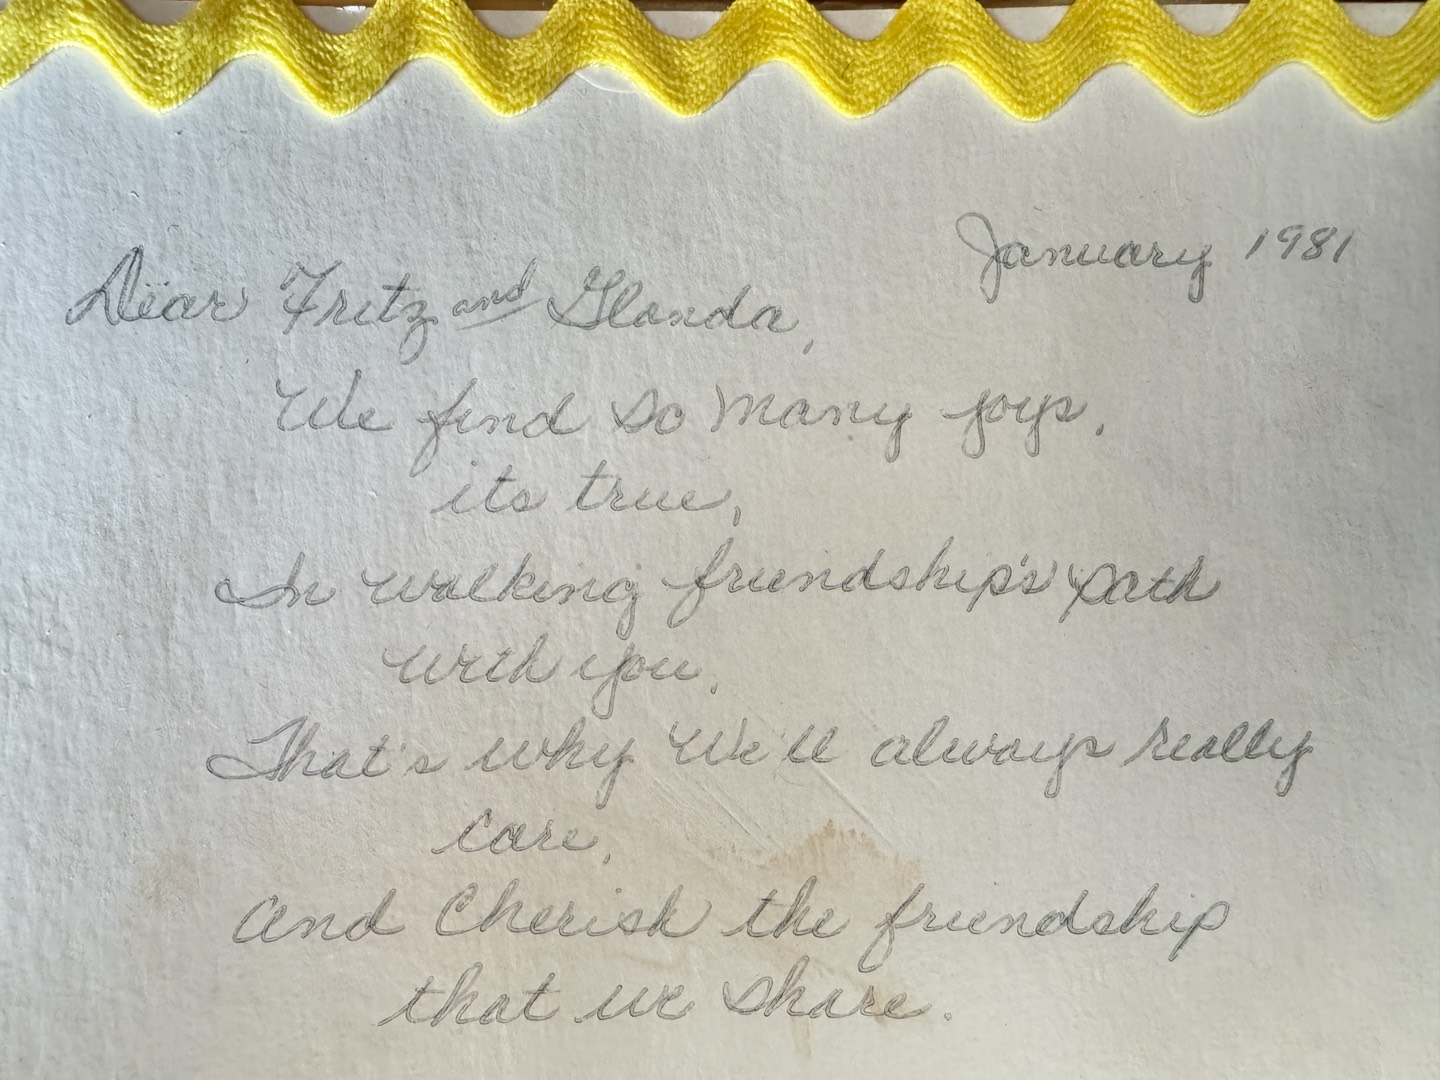 January 1981
Dear Fritz and Glanda,
We find so many joys,
its true,
In walking friendship's path
with you,
That's why We'll always really
care,
And Cherish the friendship
that we share.